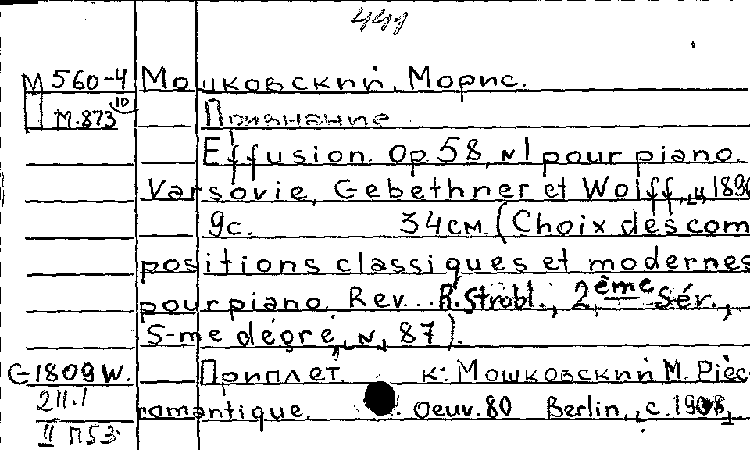 449
М 560-4 Мошковский, Морис.
М.873 10 Признание
Effusion. Op 58, N1 pour piano.
Varsovie, Gebethner et Wolff,
9с. 34см (Choix des com
positions classiques et modernes
pour piano. Rev. R. Strobl., 2ème Sér.,
5-me degré, N, 87).
С-1809W. Приплет. к: Мошковский М. Pièc
romantique. Oeuv. 80 Berlin,
II П53